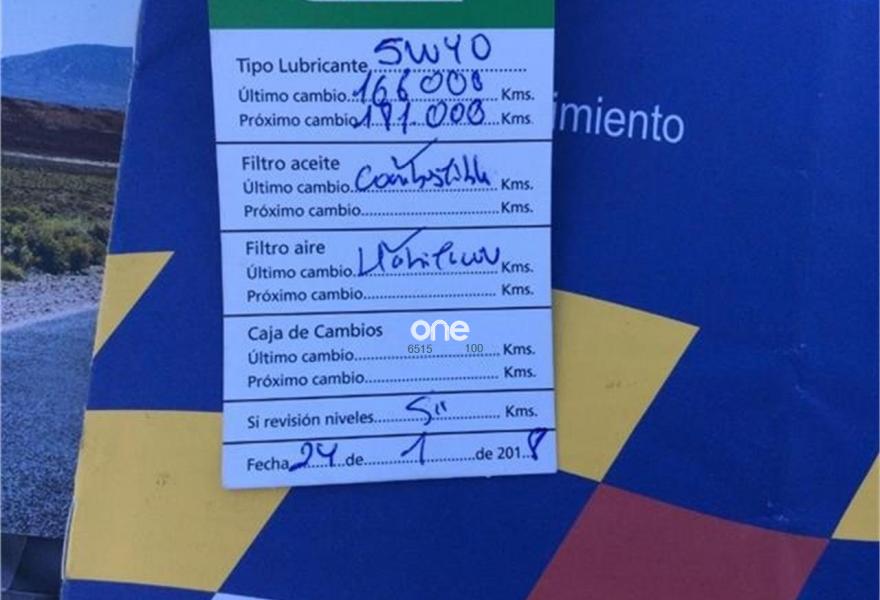 Tipo Lubricante 5W40
Último cambio 166000 Kms.
Próximo cambio 181.000 Kms.
imiento
Filtro aceite
Último cambio Combustible Kms.
Próximo cambio Kms.
Filtro aire
Último cambio Kms.
Próximo cambio Kms.
Caja de Cambios one
6515 100
Último cambio Kms.
Próximo cambio Kms.
Si revisión niveles Si Kms.
Fecha 24 de 1 de 2018